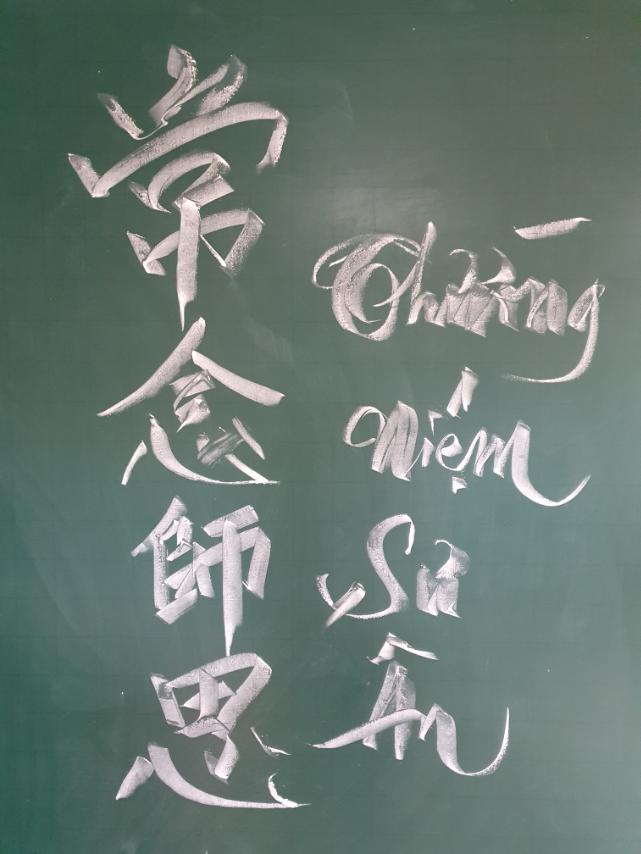 常念師恩
Thường
niệm
Sư
Ân